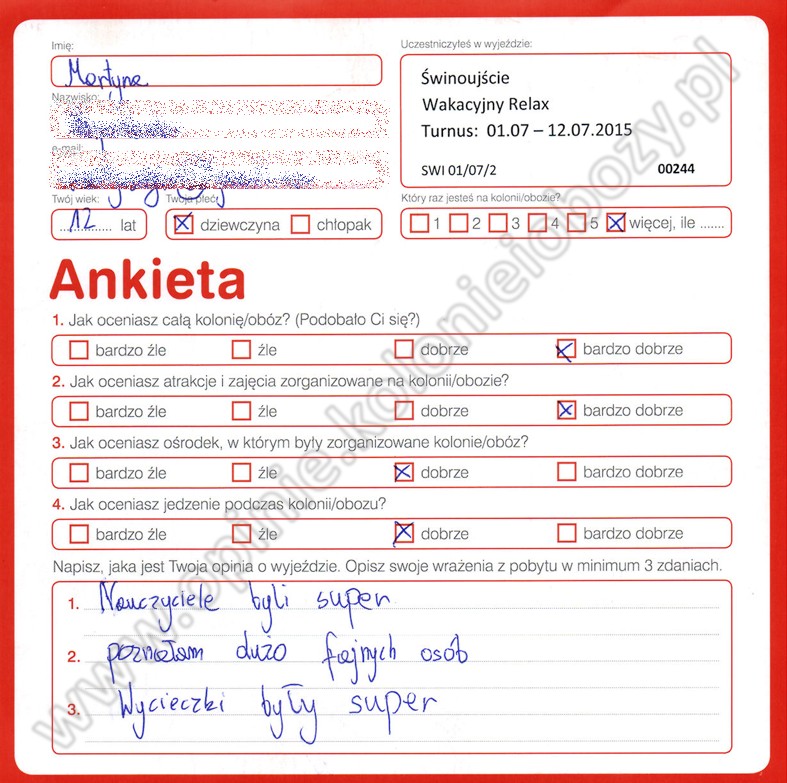 Imię:
Martyna
Nazwisko:
e-mail:
Twój wiek:
12 lat
Twoja płeć:
dziewczyna chłopak
Uczestniczyłeś w wyjeździe:
Świnoujście
Wakacyjny Relax
Turnus: 01.07 – 12.07.2015
SWI 01/07/2 00244
Który raz jesteś na kolonii/obozie?
1 2 3 4 5 więcej, ile .......
Ankieta
1. Jak oceniasz całą kolonię/obóz? (Podobało Ci się?)
bardzo źle źle dobrze bardzo dobrze
2. Jak oceniasz atrakcje i zajęcia zorganizowane na kolonii/obozie?
bardzo źle źle dobrze bardzo dobrze
3. Jak oceniasz ośrodek, w którym były zorganizowane kolonie/obóz?
bardzo źle źle dobrze bardzo dobrze
4. Jak oceniasz jedzenie podczas kolonii/obozu?
bardzo źle źle dobrze bardzo dobrze
Napisz, jaka jest Twoja opinia o wyjeździe. Opisz swoje wrażenia z pobytu w minimum 3 zdaniach.
1. Nauczyciele byli super
2. poznałam dużo fajnych osób
3. Wycieczki były super
www.opinie.kolonieiobozy.pl